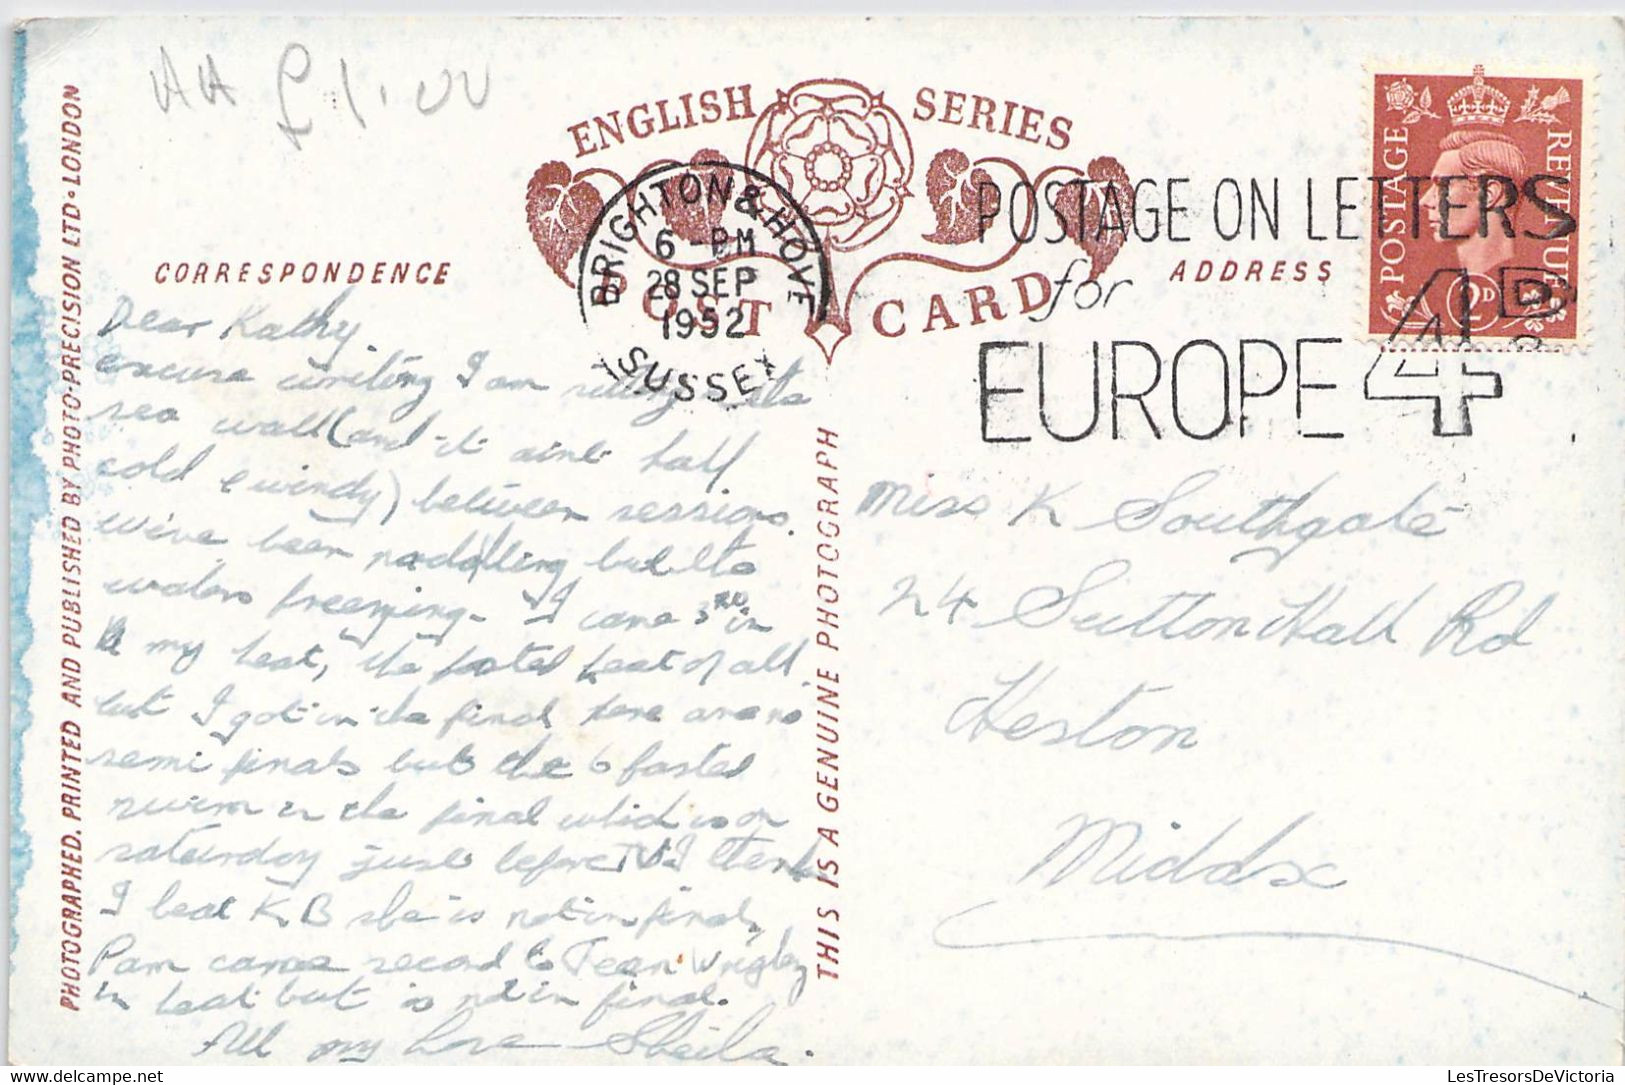 AA £1.00
ENGLISH SERIES
POST CARD
BRIGHTON & HOVE
6 - PM
28 SEP
1952
SUSSEX
POSTAGE ON LETTERS
for
EUROPE 4D
POSTAGE REVENUE
2D
CORRESPONDENCE
ADDRESS
Dear Kathy.
excuse writing I am sitting
sea wall (and it aint half
cold & windy) between sessions.
We've been paddling but the
waters freezing. I came 3RD in
my heat, the fastest heat of all
but I got in the final there are no
semi finals but the 6 fastest
swim in the final which is on
saturday just before I think
I beat K B she is not in final,
Pam came second to Jean Wrigley
in heat but is not in final.
All my love Sheila.
Miss K Southgate
24 Sutton Hall Rd
Heston
Middsx
PHOTOGRAPHED, PRINTED AND PUBLISHED BY PHOTO-PRECISION LTD • LONDON
THIS IS A GENUINE PHOTOGRAPH
delcampe.net
LesTresorsDeVictoria